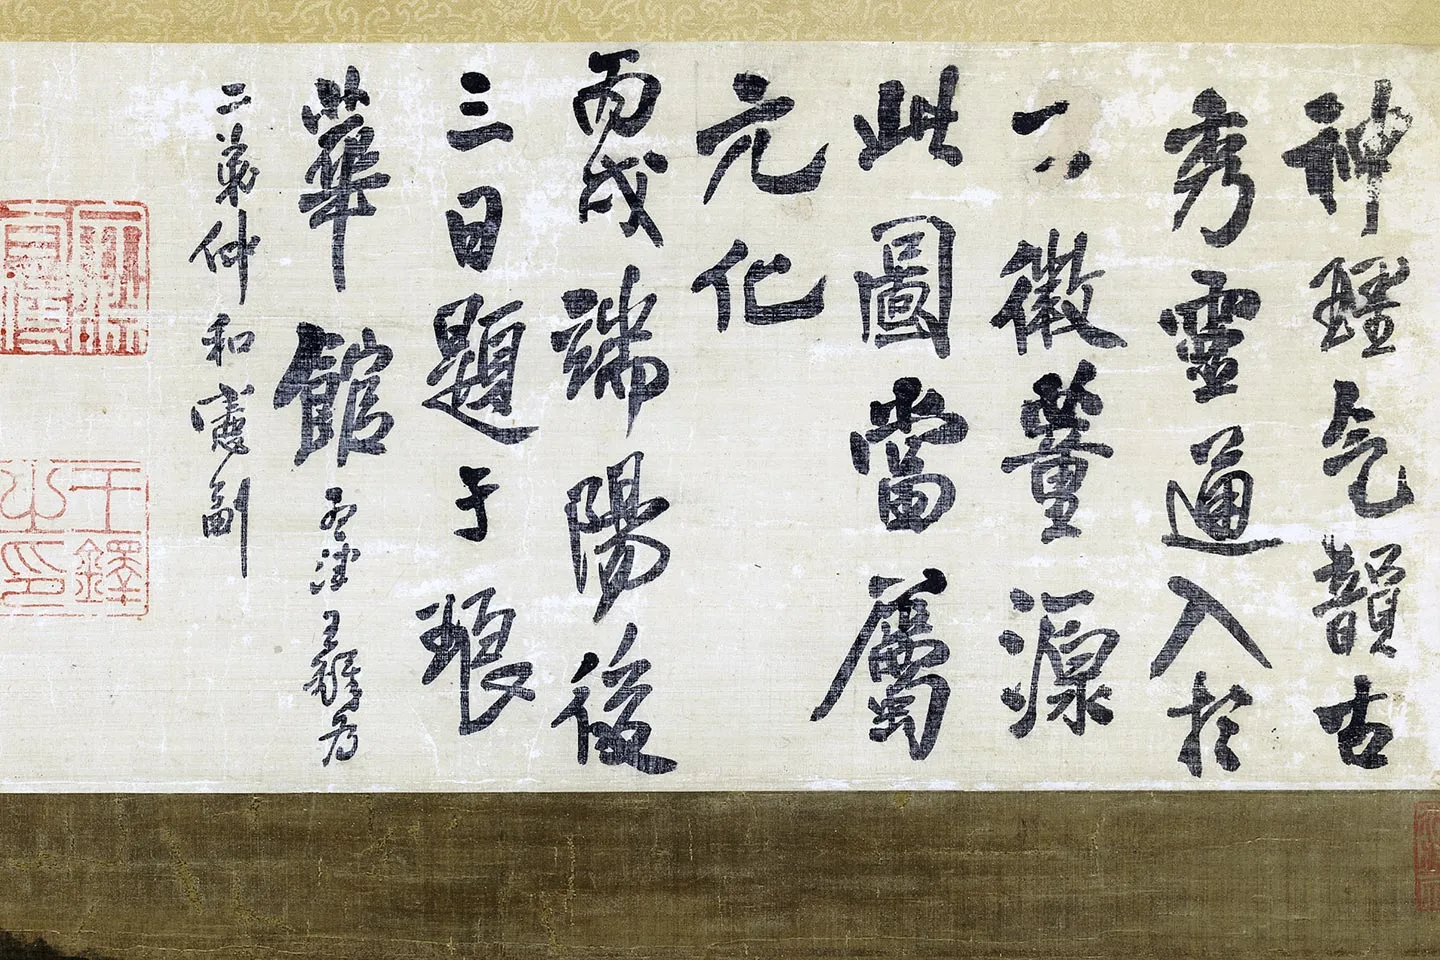 神理气韻古
秀靈通入於
微董源
此圖當屬
元化
丙戌端陽後
三日題于琅
華館孟津王鐸為
二弟仲和憲副
王鐸之印